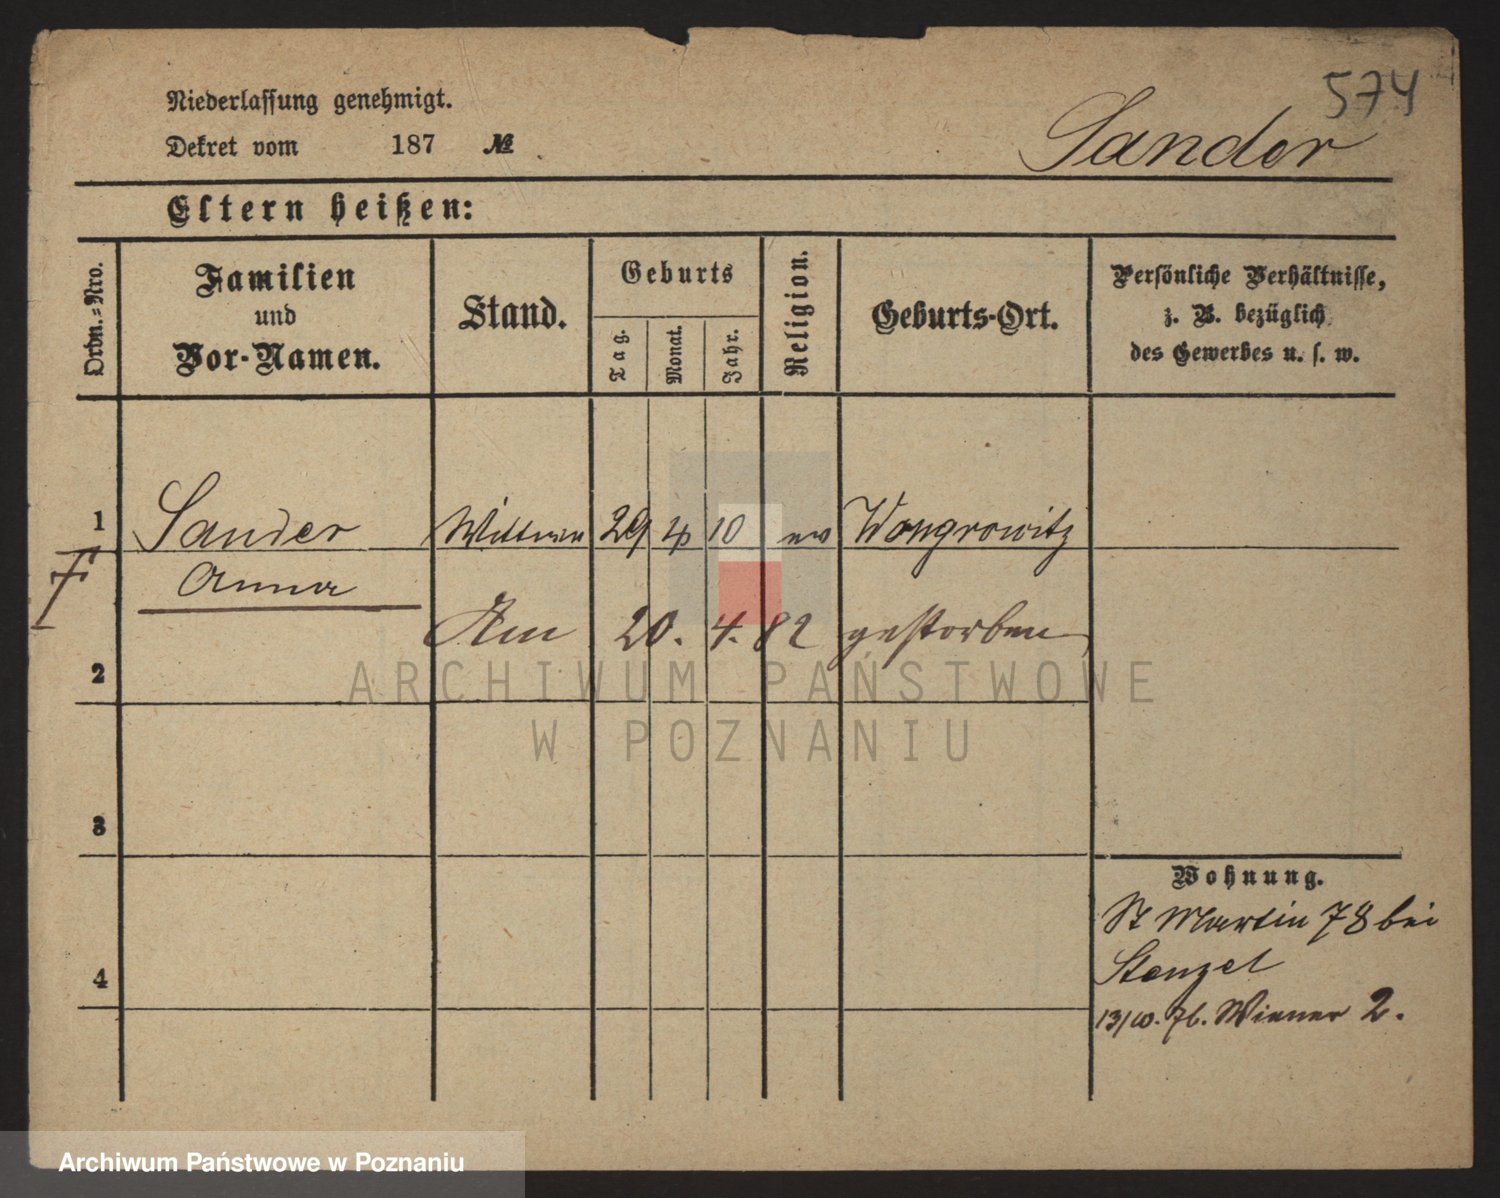 574
Niederlassung genehmigt.
Dekret vom 187 №
Sander
Eltern heißen:
Ordn.-Nro.
Familien
und
Vor-Namen.
Stand.
Geburts
Tag.
Monat.
Jahr.
Religion.
Geburts-Ort.
Persönliche Verhältnisse,
z. B. bezüglich
des Gewerbes u. s. w.
1 Sander Wittwe 29 4 10 ev Wongrowitz
Anna
Am 20. 4. 82 gestorben
2
3
4
Wohnung.
St Martin 78 bei
Stenzel
13/10. 76. Wiener 2.
ARCHIWUM PAŃSTWOWE
W POZNANIU
Archiwum Państwowe w Poznaniu